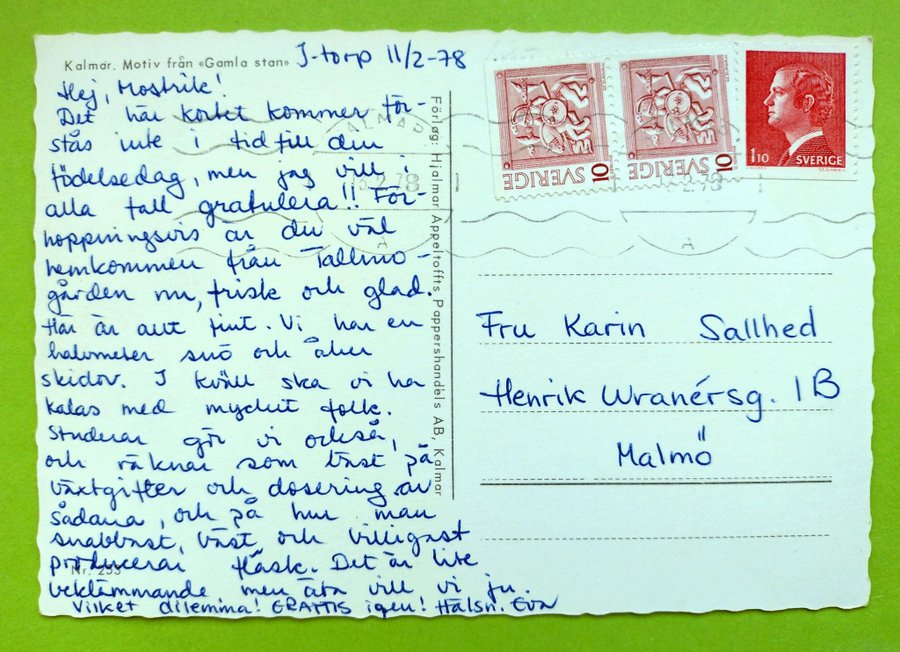 Kalmar. Motiv från «Gamla stan»
J-torp 11/2-78
Hej, Mostrik!
Det här kortet kommer för-
stås inte i tid till din
födelsedag, men jag vill i
alla fall gratulera!! För-
hoppningsvis är du väl
hemkommen från Tallmo-
gården nu, frisk och glad.
Här är allt fint. Vi har en
halvmeter snö och åker
skidor. I kväll ska vi ha
kalas med mycket folk.
Studerar gör vi också,
och räknar som bäst på
växtgifter och dosering av
sådana, och på hur man
snabbast, bäst och billigast
producerar fläsk. Det är lite
beklämmande men äta vill vi ju.
Vilket dilemma! GRATTIS igen! Hälsn. Eva
Nr. 253
Förlag: Hjalmar Appeltoffts Pappershandels AB, Kalmar
SVERIGE 10
SVERIGE 10
1.10 SVERIGE
2.78
A
2.78
A
Fru Karin Sallhed
Henrik Wranérsg. 1B
Malmö